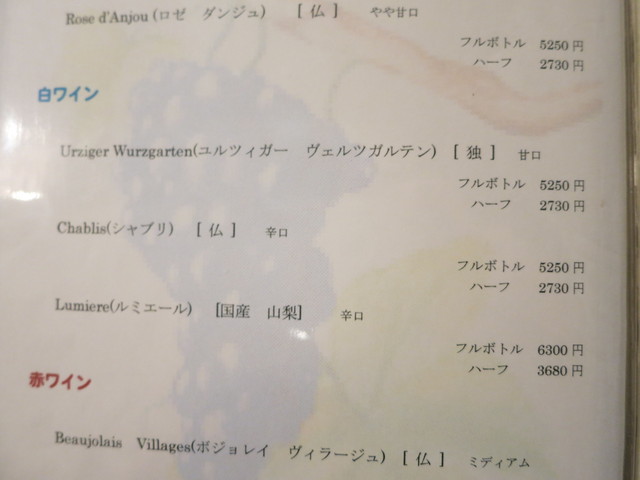 Rose d'Anjou (ロゼ ダンジュ) [ 仏 ] やや甘口
フルボトル 5250 円
ハーフ 2730 円
白ワイン
Urziger Wurzgarten(ユルツィガー ヴェルツガルテン) [ 独 ] 甘口
フルボトル 5250 円
ハーフ 2730 円
Chablis(シャブリ) [ 仏 ] 辛口
フルボトル 5250 円
ハーフ 2730 円
Lumiere(ルミエール) [国産 山梨] 辛口
フルボトル 6300 円
ハーフ 3680 円
赤ワイン
Beaujolais Villages(ボジョレイ ヴィラージュ) [ 仏 ] ミディアム